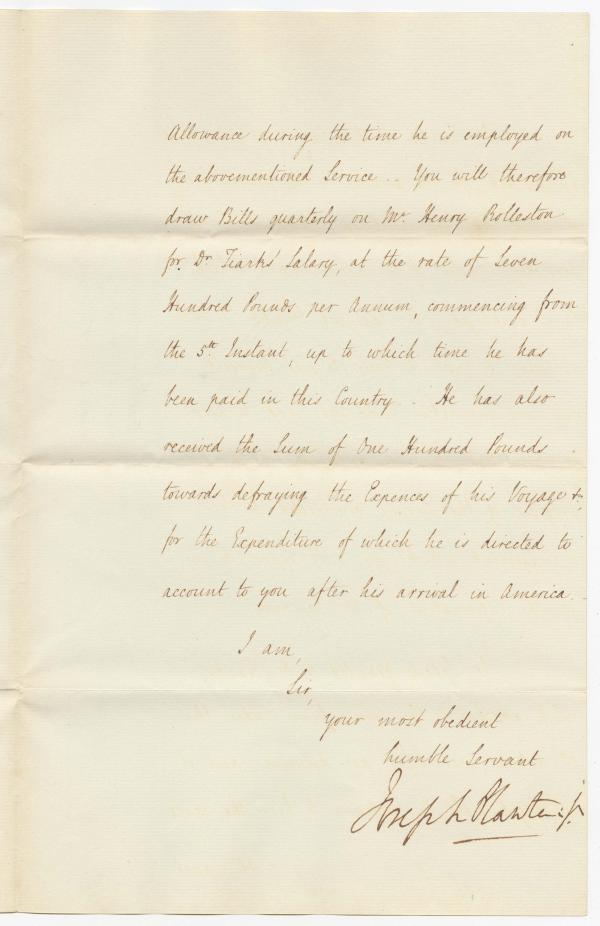 Allowance during the time he is employed on
the abovementioned Service .. You will therefore
draw Bills quarterly on Mr. Henry Rolleston
for Dr. Tiarks' Salary, at the rate of Seven
Hundred Pounds per Annum, commencing from
the 5th. Instant, up to which time he has
been paid in this Country. He has also
received the Sum of One Hundred Pounds
towards defraying the Expences of his Voyage &c.,
for the Expenditure of which he is directed to
account to you after his arrival in America.
I am,
Sir,
your most obedient
humble Servant
Joseph Planta jr.